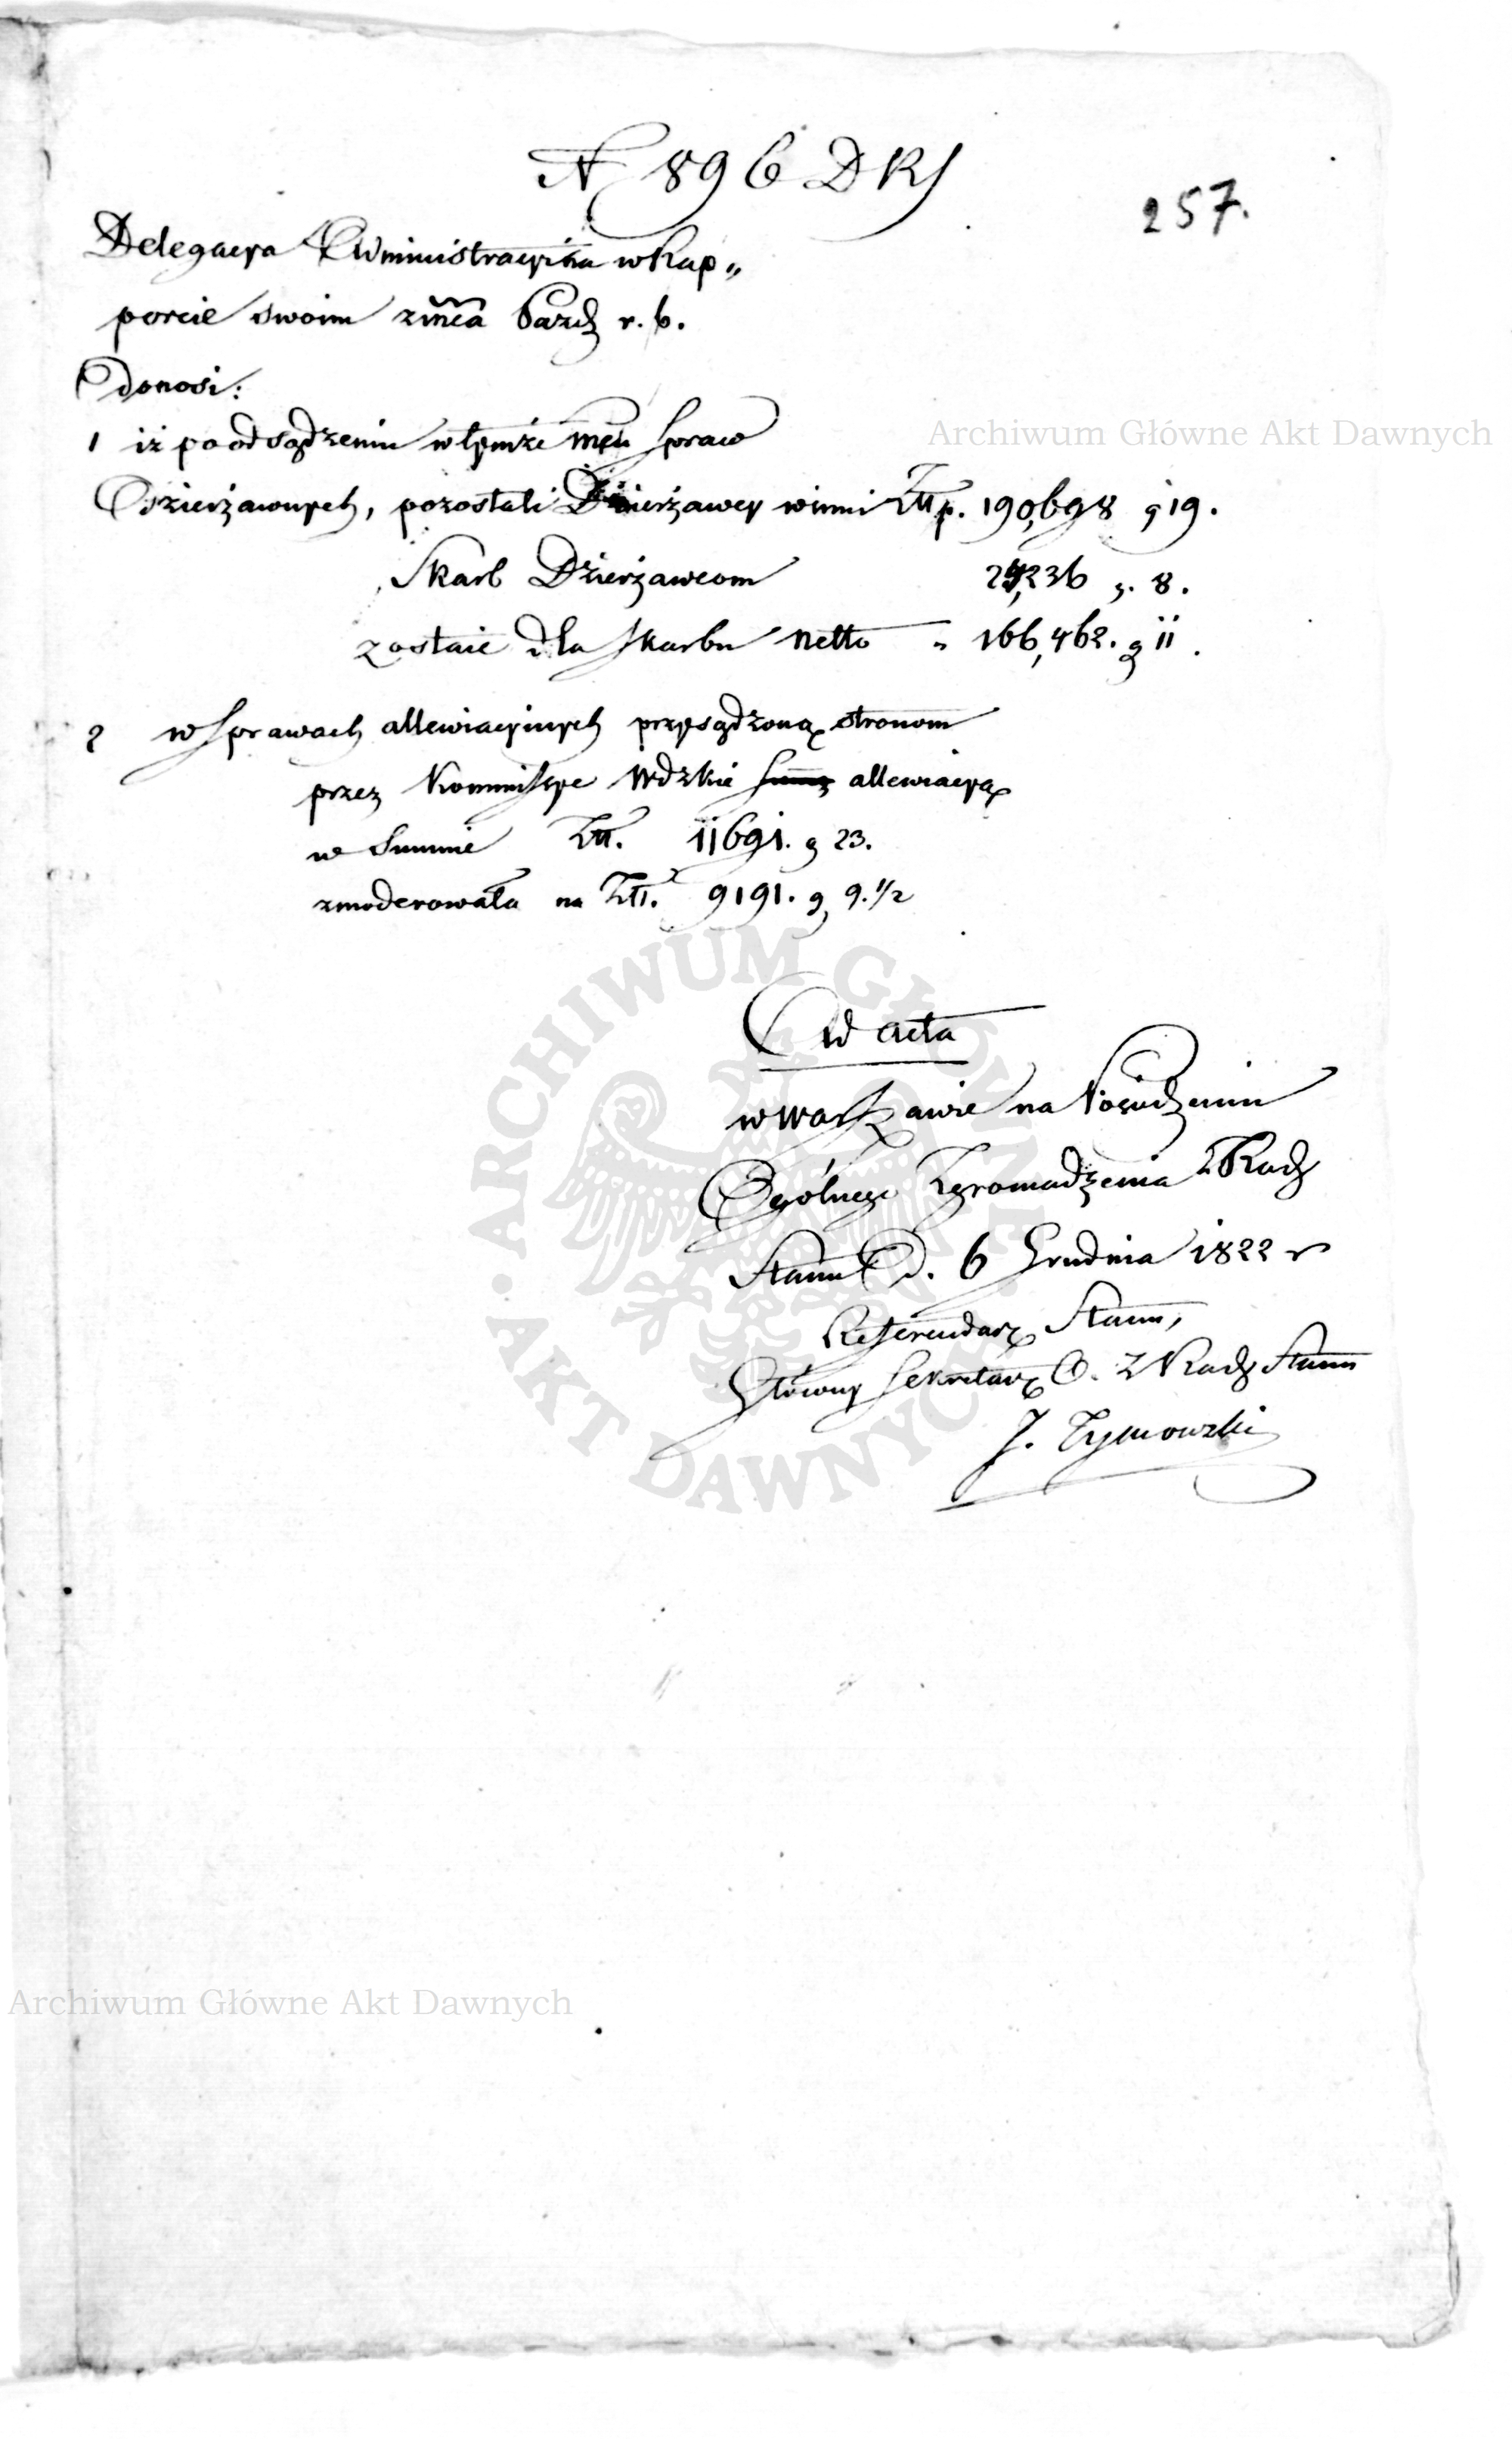 N 896 DRS
257.
Delegacya Administracyina w Rap„
porcie swoim z mca Pazdz r. b.
donosi:
1 iż po odsądzeniu w tymże mcu spraw
Dzierżawnych, pozostali Dzierżawcy winni Złłp. 190,698 g 19.
Skarb Dzierżawcom 24,236 g. 8.
zostaie dla skarbu netto „ 166,462. g 11.
2 w sprawach allewiacyinych przysądzoną stronom
przez Kommissye Wdzkie summę allewiacyą
w Summie Złł. 11691. g 23.
zmoderowała na Złł. 9191. g 9. 1/2
Ad acta
w Warszawie na Posiedzeniu
Ogólnego Zgromadzenia Rady
Stanu d. 6 Grudnia 1822 r
Referendarz Stanu,
Główny Sekretarz O. Z Rady Stanu
J. Tymowski
Archiwum Główne Akt Dawnych
ARCHIWUM GŁÓWNE AKT DAWNYCH
Archiwum Główne Akt Dawnych